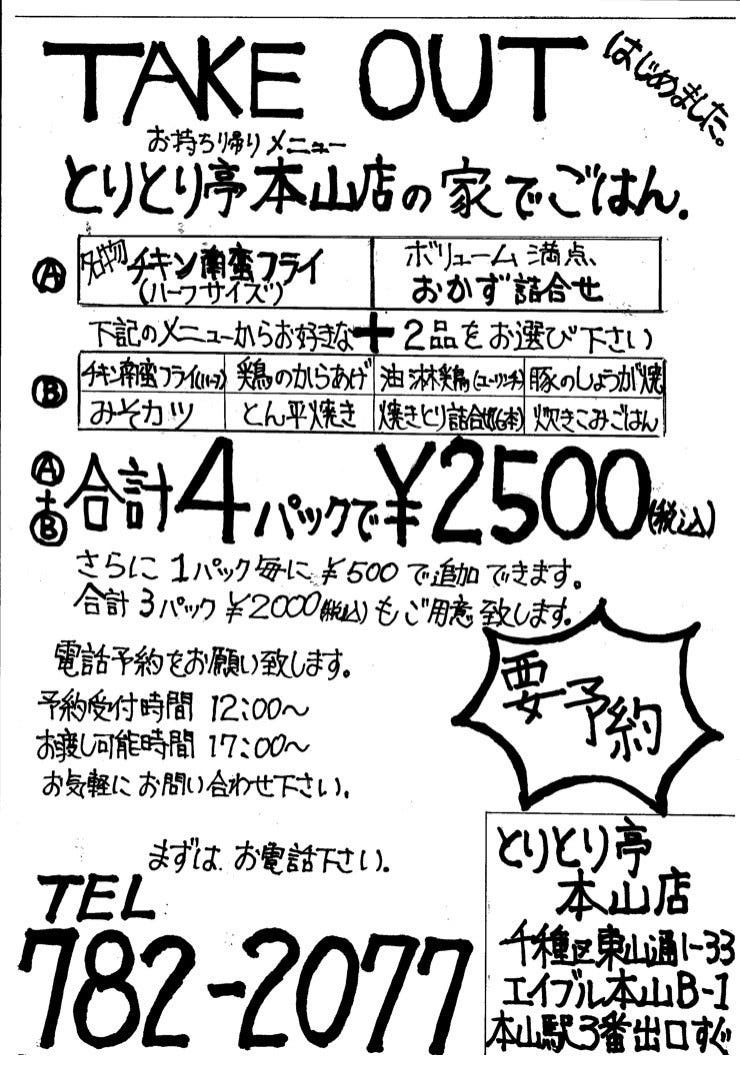 TAKE OUT
はじめました。
お持ち帰りメニュー
とりとり亭本山店の家でごはん.
Ⓐ 名物 チキン南蛮フライ (ハーフサイズ)
ボリューム満点、
おかず詰合せ
下記のメニューからお好きな+2品をお選び下さい
Ⓑ チキン南蛮フライ(ハーフ) 鶏のからあげ 油淋鶏(ユーリンチ) 豚のしょうが焼
みそカツ とん平焼き 焼きとり詰合せ(6本) 炊きこみごはん
Ⓐ+Ⓑ 合計4パックで¥2500(税込)
さらに1パック毎に¥500で追加できます。
合計3パック¥2000(税込)もご用意致します。
電話予約をお願い致します。
予約受付時間 12:00〜
お渡し可能時間 17:00〜
お気軽にお問い合わせ下さい.
要予約
まずはお電話下さい.
TEL
782-2077
とりとり亭
本山店
千種区東山通1-33
エイブル本山B-1
本山駅3番出口すぐ